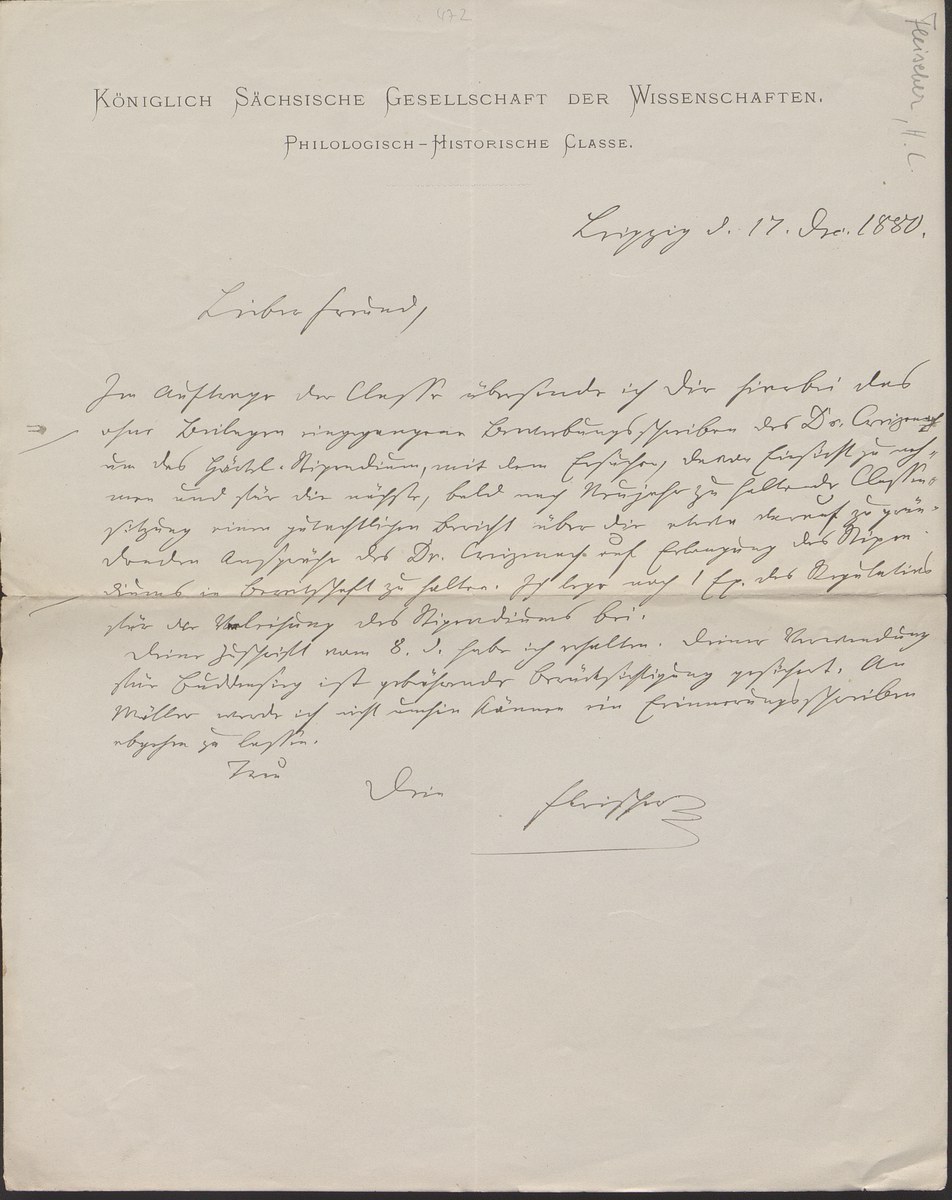 472
Fleischer, H. L.
KÖNIGLICH SÄCHSISCHE GESELLSCHAFT DER WISSENSCHAFTEN.
PHILOLOGISCH-HISTORISCHE CLASSE.
Leipzig d. 17. Dec. 1880.
Lieber Freund,
Im Auftrage der Classe übersende ich Dir hierbei das
ohne Beilagen eingegangene Bewerbungsschreiben des Dr. Creizenach
um das Stipendium, mit dem Ersuchen, davon Einsicht zu neh-
men und für die nächste, bald nach Neujahr zu haltende Classen-
sitzung einen gutachtlichen Bericht über die etwa darauf zu grün-
denden Ansprüche des Dr. Creizenach auf Erlangung des Stipen-
diums in Bereitschaft zu halten. Ich lege noch 1 Ex. des Regulativs
für die Verleihung des Stipendiums bei.
Deine Zuschrift vom 8. d. habe ich erhalten. Deiner Verwendung
für Buddensieg ist gebührende Berücksichtigung gesichert. An
Möller werde ich nicht umhin können ein Erinnerungsschreiben
abgehen zu lassen.
Treu
Dein Fleischer